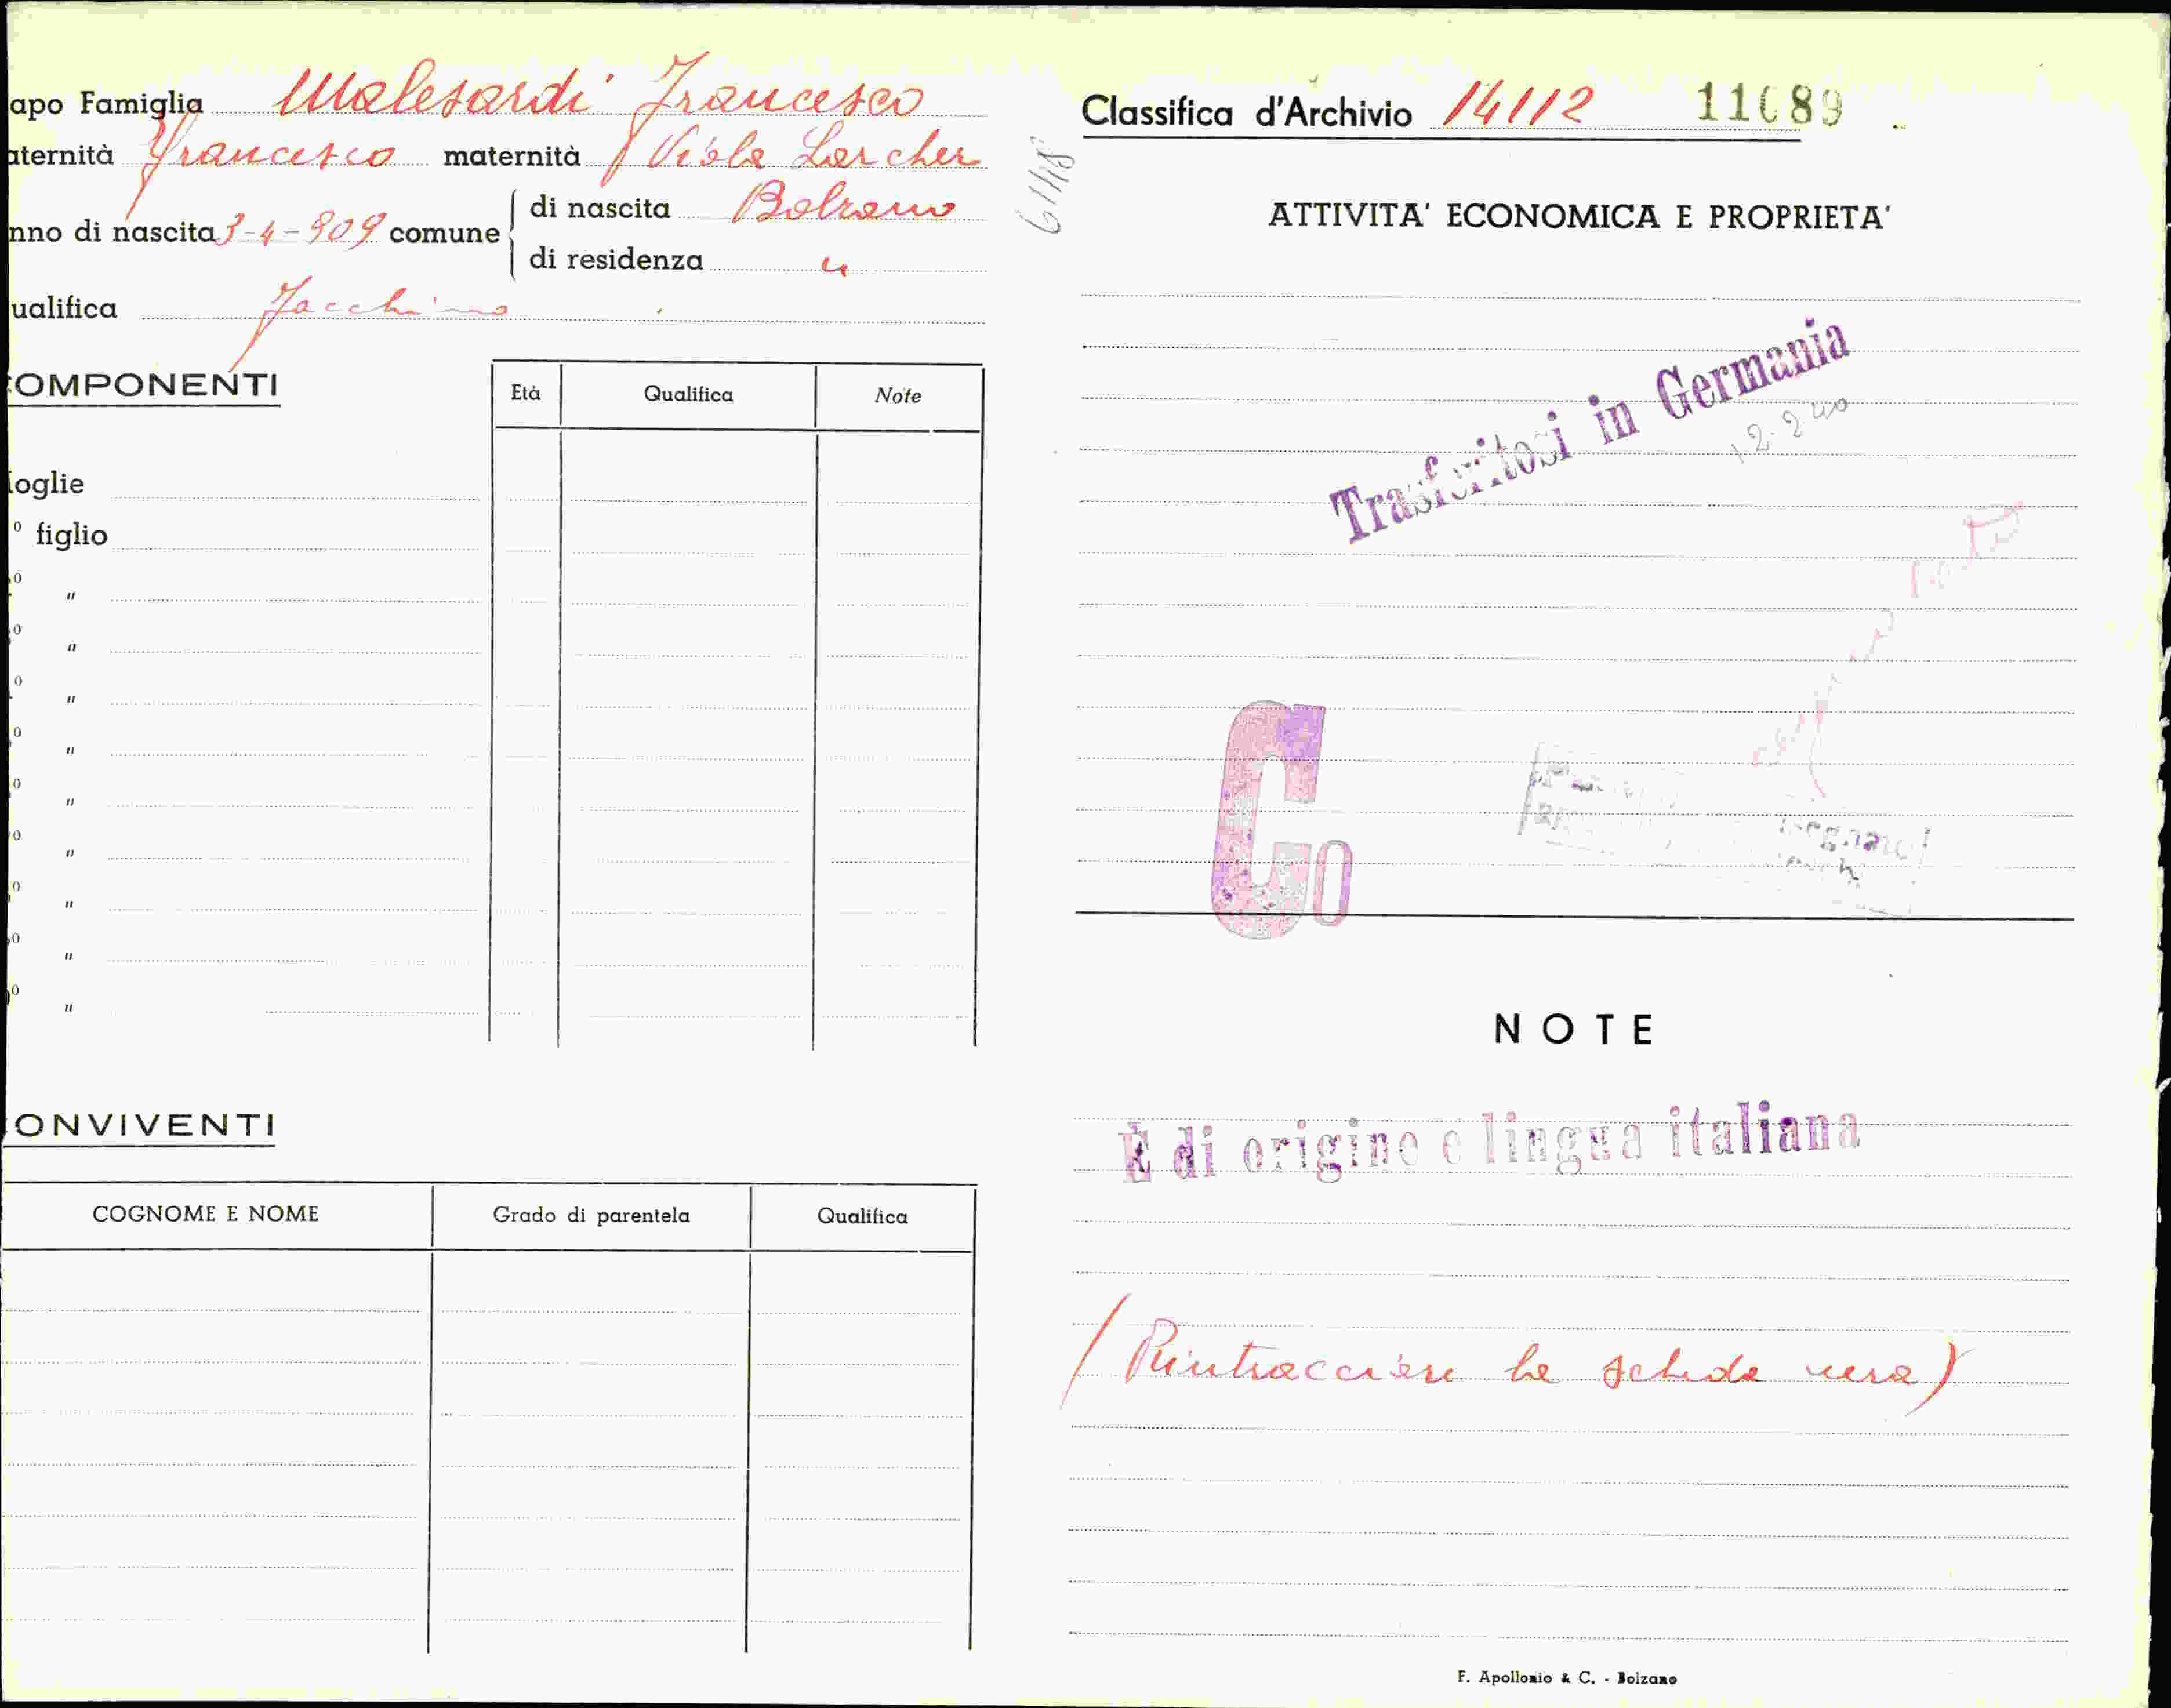 apo Famiglia Malesardi Francesco
aternità Francesco maternità Viola Larcher
nno di nascita 3-4-909 comune di nascita Bolzano
di residenza "
ualifica Facchino
OMPONENTI
Età Qualifica Note
oglie
° figlio
° "
° "
° "
° "
° "
° "
° "
° "
° "
ONVIVENTI
COGNOME E NOME Grado di parentela Qualifica
Classifica d'Archivio 14112 11089
ATTIVITA' ECONOMICA E PROPRIETA'
Trasferitosi in Germania
12-2 40
Go
NOTE
È di origine e lingua italiana
(Rintracciare la scheda vera)
F. Apollonio & C. - Bolzano